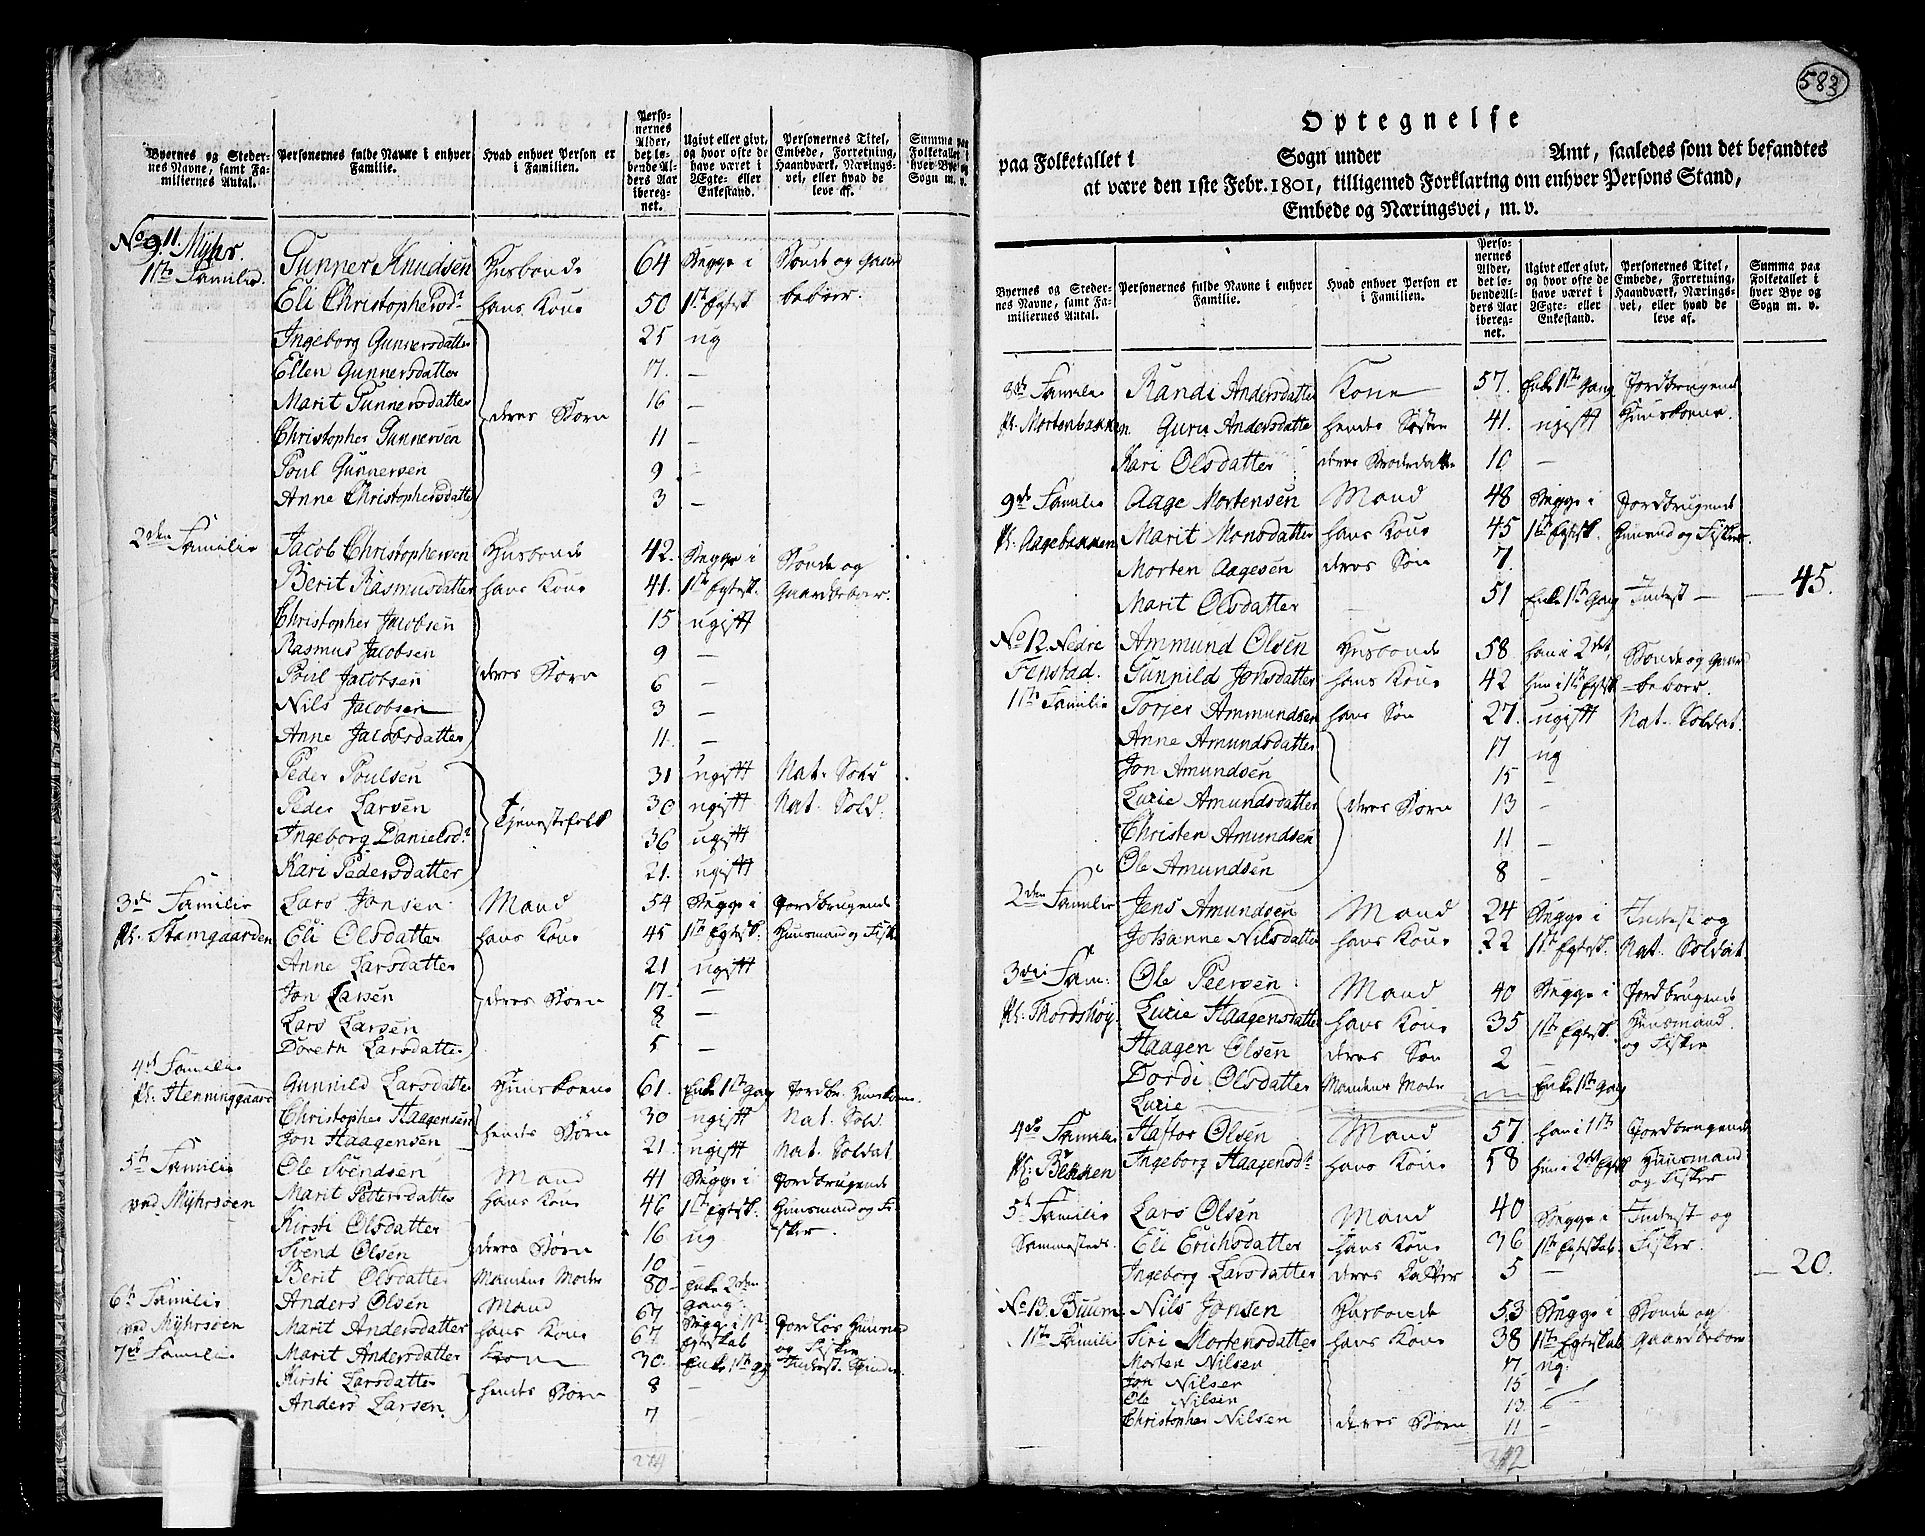 Byernes og Stedernes Navne, samt Familiernes Antal. | Personernes fulde Navne i enhver Familie. | Hvad enhver Person er i Familien. | Personernes Alder, det løbende Alders Aar iberegnet. | Ugivt eller givt, og hvor ofte de have været i Ægte- eller Enkestand. | Personernes Titel, Embede, Forretning, Haandværk, Næringsvei, eller hvad de leve af. | Summa paa Folketallet i hver Bye og Sogn m. v.
No 11. Myhr.
1ste Familie. Gunner Knudsen Husbonde 64 Begge i Bonde og Gaard
Eli Christophersd. hans Kone 50 1ste Egtesk beboer.
Ingeborg Gunnersdatter 25 ug
Ellen Gunnersdatter 17. –
Marit Gunnersdatter deres Børn 16 –
Christopher Gunnersen 11 –
Poul Gunnersen 9 –
Anne Christophersdatter 3 –
2den Familie Jacob Christophersen Husbonde 42. Begge i Bonde og
Berit Rasmusdatter hans Kone 41. 1ste Egtesk. Gaardbeboer.
Christopher Jacobsen 15 ugift
Rasmus Jacobsen 9 –
Poul Jacobsen deres Børn 6 –
Nils Jacobsen 3 –
Anne Jacobsdatter 11 –
Peder Poulsen 31 ugift Nat. Sold
Peder Larsen Tjenestefolk 30 ugift Nat. Sold.
Ingeborg Danielsd. 36 ugift
Kari Pedersdatter 21. ugift
3de Familie Lars Jonsen Mand 54 Begge i Jordbrugende
Pl. Stamgaarden Eli Olsdatter hans Kone 45 1ste Egtesk. Huusmand og Fisk
Anne Larsdatter 21 ugift
Jon Larsen deres Børn 17. –
Lars Larsen 8 –
Doreth Larsdatter 5 –
4de Familie
Pl. Henninggaard Gunnild Larsdatter Huuskone 61. Enke 1ste Gang Jordbr. Huuskone
Christopher Haagensen hendes Børn 30 ugift Nat. Sold.
Jon Haagensen 21. ugift Nat. Soldat
5te Familie Ole Svendsen Mand 41 Begge i Jordbrugende
ved Myhrsøen Marit Pettersdatter hans Kone 46 1ste Egtesk. Huusmand og Fi
Kirsti Olsdatter deres Børn 16 ug sker.
Svend Olsen 10 –
Berit Olsdatter Mandens Moder 80 Enke 2den Gang
6te Familie Anders Olsen Mand 67 Begge i 1ste Jordløs Huusmd
ved Myhrsøen Marit Andersdatter hans Kone 67 Egteskab og Fisker
7de Familie Marit Andersdatter Kone 30. Enke 1ste Inderst
Kirsti Larsdatter hendes Børn 8 –
Anders Larsen 7 –
274
583
Optegnelse
paa Folketallet i Sogn under Amt, saaledes som det befandtes
at være den 1ste Febr. 1801, tilligemed Forklaring om enhver Persons Stand,
Embede og Næringsvei, m. v.
Byernes og Stedernes Navne, samt Familiernes Antal. | Personernes fulde Navne i enhver Familie. | Hvad enhver Person er i Familien. | Personernes Alder, det løbende Alders Aar iberegnet. | Ugivt eller givt, og hvor ofte de have været i Ægte- eller Enkestand. | Personernes Titel, Embede, Forretning, Haandværk, Næringsvei, eller hvad de leve af. | Summa paa Folketallet i hver Bye og Sogn m. v.
8de Familie Randi Andersdatter Kone 57. Enke 1ste Gang Jordbrugende
Pl. Mortenbakken Guru Andersdatter hendes Søster 41. ugift Huuskone.
Kari Olsdatter deres Broderdatter 10 –
9de Familie Aage Mortensen Mand 48 Begge i Jordbrugende
Pl. Aagebakken Marit Monsdatter hans Kone 45 1ste Egtesk. Huusmd og Fisker.
Morten Aagesen deres Søn 7.
Marit Olsdatter – 51 Enke 1ste Gang Inderst – 45.
No 12. Nedre Ammund Olsen Husbonde 58 han i 2det, Bonde og Gaard
Fenstad. Gunnild Jonsdatter hans Kone 42 hun i 1ste Egtesk beboer.
1ste Familie Torjer Ammundsen hans Søn 27. ugift Nat. Soldat
Anne Amundsdatter 17 ug
Jon Amundsen 15 –
Luzie Amundsdatter deres Børn 13 –
Christen Amundsen 11 –
Ole Amundsen 8 –
2den Familie Jens Amundsen Mand 24 Begge i Inderst og
Johanne Nilsdatter hans Kone 22 1ste Egtesk. Nat. Soldat
3die Fam: Ole Peersen Mand 40 Begge i Jordbrugende
Pl. Thordshøy. Luzie Haagensdatter hans Kone 35 1ste Egtesk. Huusmand
Haagen Olsen deres Søn 2 og Fisker
Dordi Olsdatter Mandens Moder Enke 1ste Gang
Luzie
4de Familie Haftor Olsen Mand 57. han i 1ste Jordbrugende
Pl. Bekken Ingeborg Haagensd. hans Kone 58 hun i 2det Egtesk Huusmand og Fisker
5te Familie Lars Olsen Mand 40 Begge i Inderst og
Sammesteds. Eli Erichsdatter hans Kone 36 1ste Egteskab Fisker.
Ingeborg Larsdatter deres Datter 5 – 20.
No 13. Buum Nils Jonsen Husbonde 53 Begge i Bonde og
1ste Familie Siri Mortensdatter hans Kone 38 1ste Egteskab Gaardbeboer
Morten Nilsen 17 ug.
Jon Nilsen 15 –
Ole Nilsen 13. –
Christopher Nilsen deres Børn 11 –
312